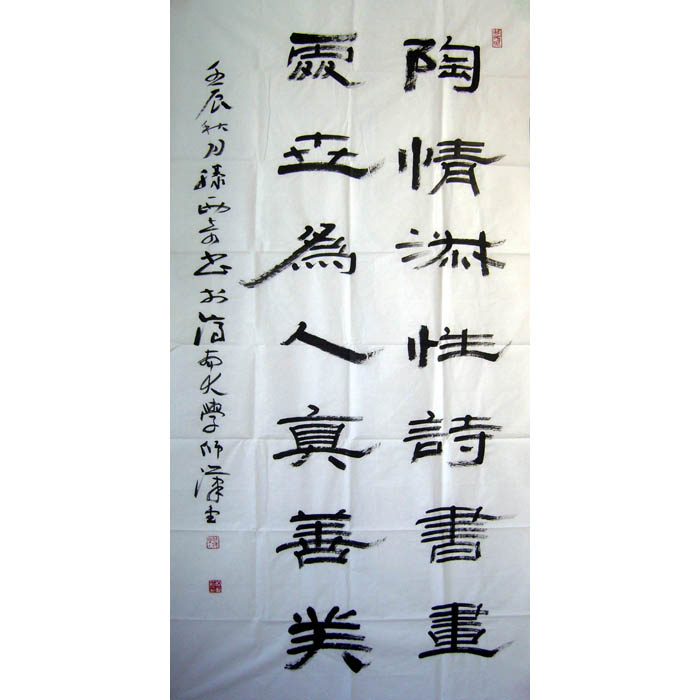 陶情淋性詩書畫
處世為人真善美
壬辰秋月滕西奇書於濟南大學師漢堂